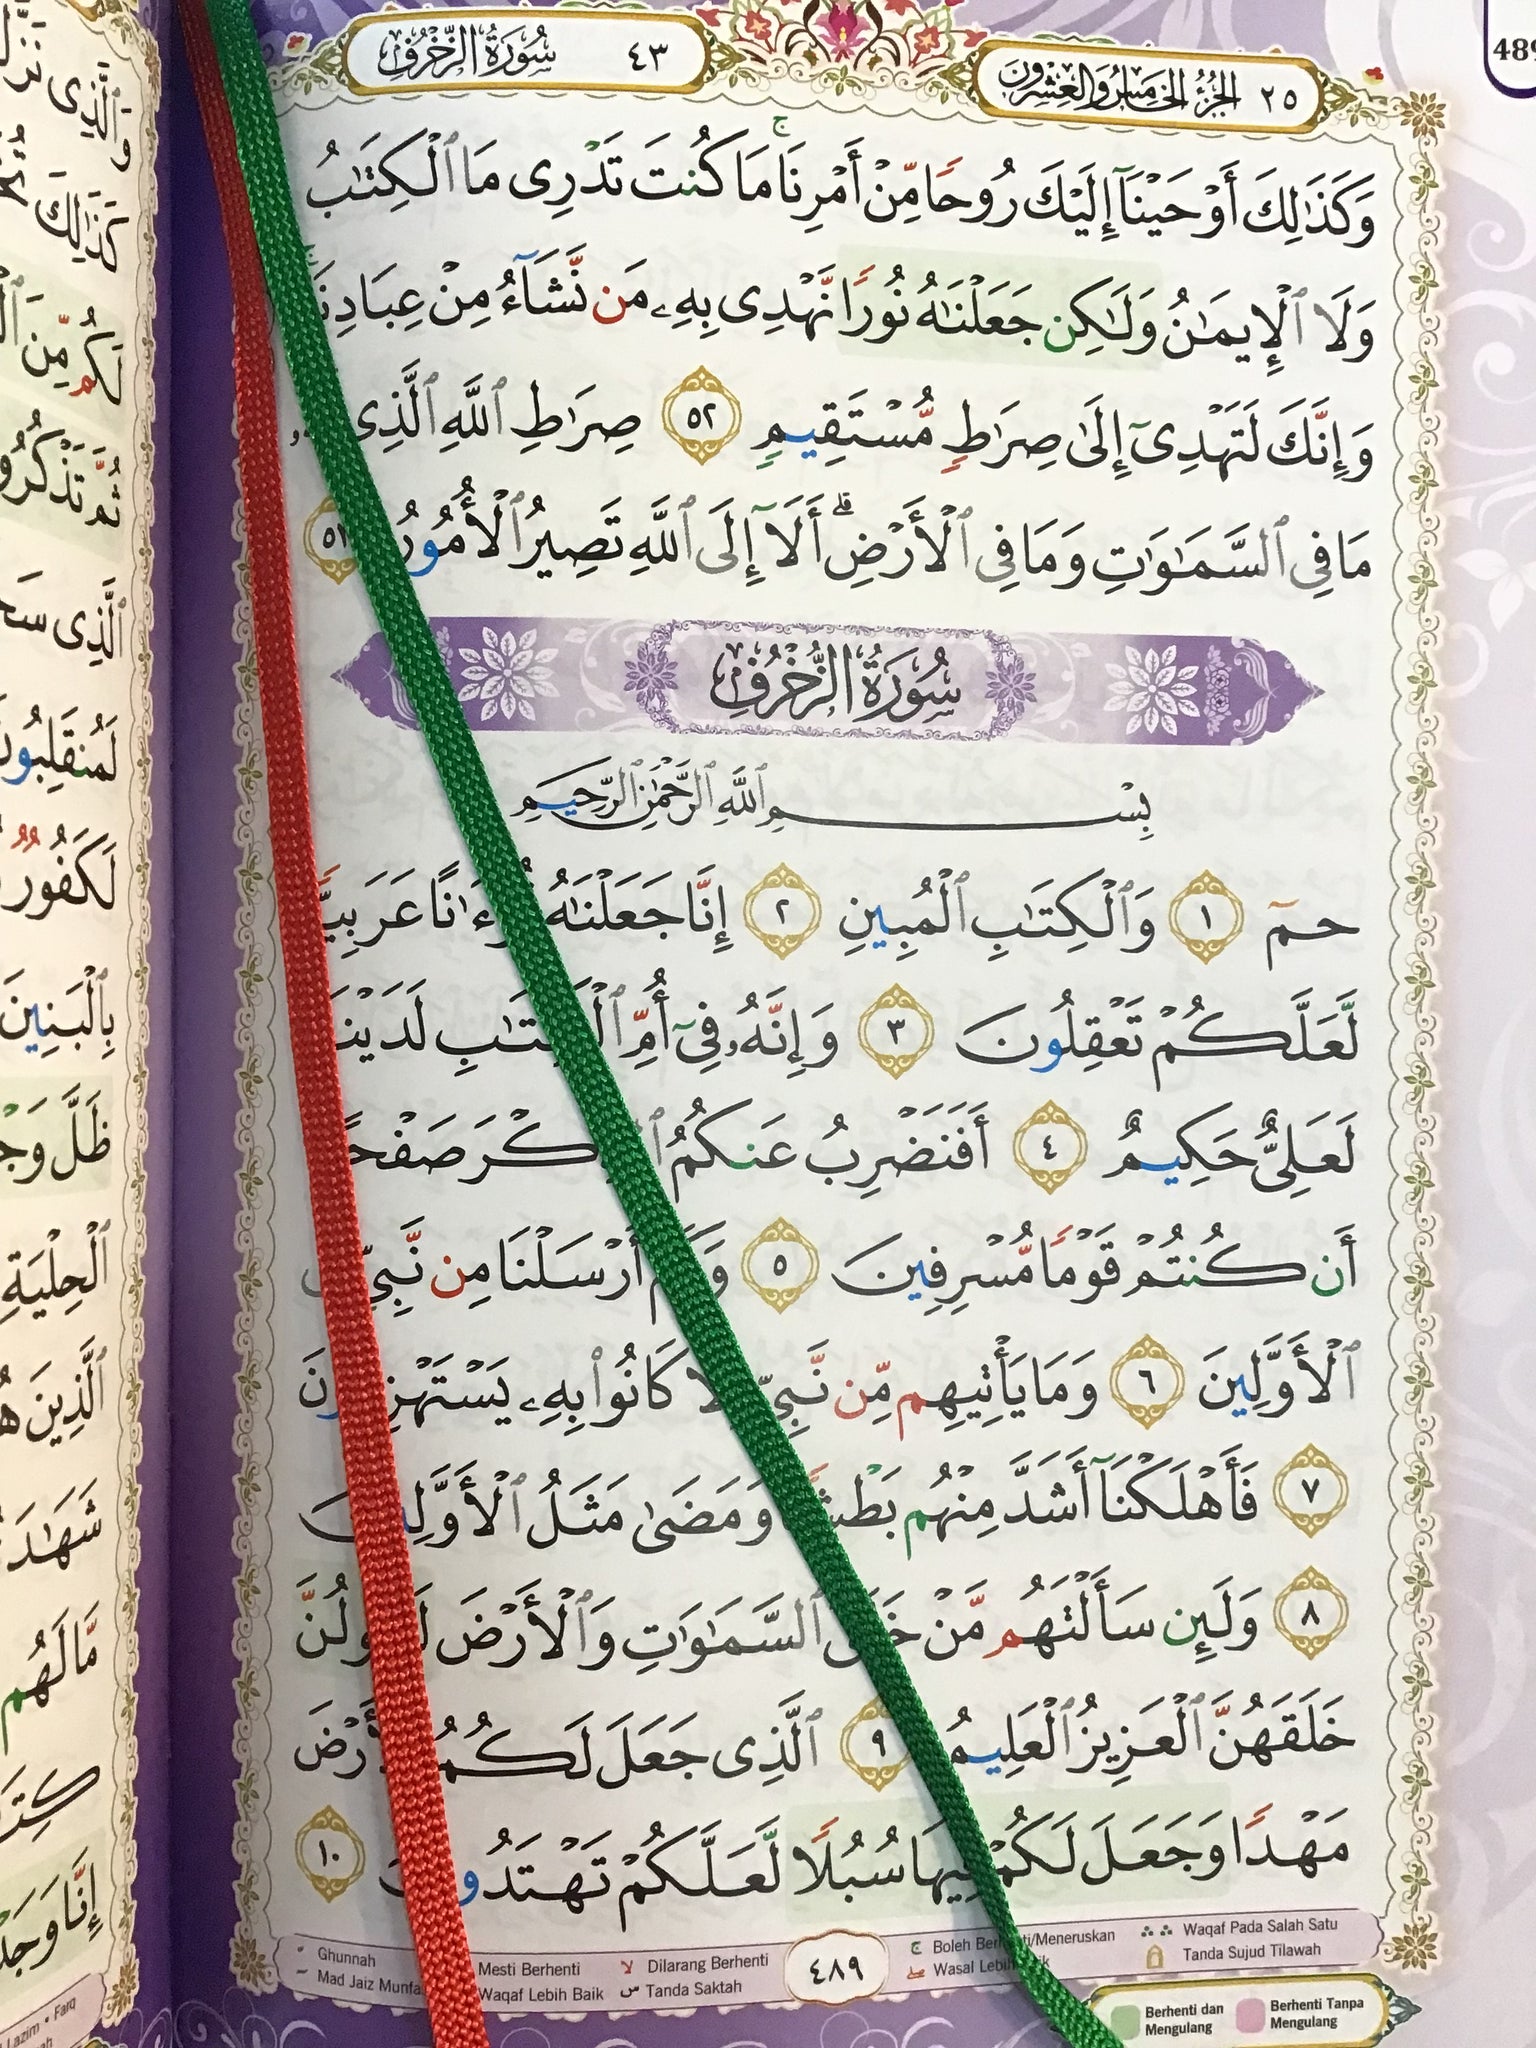 489
٢٥ الجزء الخامس والعشرون
٤٣ سورة الزخرف
وَكَذَٰلِكَ أَوْحَيْنَآ إِلَيْكَ رُوحًا مِّنْ أَمْرِنَا ۚ مَا كُنتَ تَدْرِى مَا ٱلْكِتَٰبُ
وَلَا ٱلْإِيمَٰنُ وَلَٰكِن جَعَلْنَٰهُ نُورًا نَّهْدِى بِهِۦ مَن نَّشَآءُ مِنْ عِبَادِنَا
وَإِنَّكَ لَتَهْدِىٓ إِلَىٰ صِرَٰطٍ مُّسْتَقِيمٍ ٥٢ صِرَٰطِ ٱللَّهِ ٱلَّذِى
مَا فِى ٱلسَّمَٰوَٰتِ وَمَا فِى ٱلْأَرْضِ ۗ أَلَآ إِلَى ٱللَّهِ تَصِيرُ ٱلْأُمُورُ
سُورَةُ الزُّخْرُفِ
بِسْمِ ٱللَّهِ ٱلرَّحْمَٰنِ ٱلرَّحِيمِ
حمٓ ١ وَٱلْكِتَٰبِ ٱلْمُبِينِ ٢ إِنَّا جَعَلْنَٰهُ عَرَبِيًّا
لَّعَلَّكُمْ تَعْقِلُونَ ٣ وَإِنَّهُۥ فِىٓ أُمِّ ٱلْكِتَٰبِ لَدَيْنَا
لَعَلِىٌّ حَكِيمٌ ٤ أَفَنَضْرِبُ عَنكُمُ صَفْحًا
أَن كُنتُمْ قَوْمًا مُّسْرِفِينَ ٥ وَكَمْ أَرْسَلْنَا مِن نَّبِىٍّ
ٱلْأَوَّلِينَ ٦ وَمَا يَأْتِيهِم مِّن نَّبِىٍّ كَانُوا۟ بِهِۦ يَسْتَهْزِءُونَ
٧ فَأَهْلَكْنَآ أَشَدَّ مِنْهُم بَطْشًا وَمَضَىٰ مَثَلُ ٱلْأَوَّلِينَ
٨ وَلَئِن سَأَلْتَهُم مَّنْ خَلَقَ ٱلسَّمَٰوَٰتِ وَٱلْأَرْضَ لَيَقُولُنَّ
خَلَقَهُنَّ ٱلْعَزِيزُ ٱلْعَلِيمُ ٩ ٱلَّذِى جَعَلَ لَكُمُ ٱلْأَرْضَ
مَهْدًا وَجَعَلَ لَكُمْ فِيهَا سُبُلًا لَّعَلَّكُمْ تَهْتَدُونَ ١٠
Ghunnah
Mad Jaiz
Mesti Berhenti
Waqaf Lebih Baik
Dilarang Berhenti
Tanda Saktah
٤٨٩
Boleh Berhenti/Meneruskan
Wasal Lebih Baik
Waqaf Pada Salah Satu
Tanda Sujud Tilawah
Berhenti dan Mengulang
Berhenti Tanpa Mengulang
وَٱلَّذِى
كَذَٰلِكَ
لَكُم مِّنَ
ثُمَّ تَذْكُرُوا
ٱلَّذِى
لَمُنقَلِبُونَ
لَكَفُورٌ
بِٱلْبَنِينَ
ظَلَّ
ٱلْحِلْيَةِ
ٱلَّذِينَ
مَّا لَهُم
Lazim • Farq